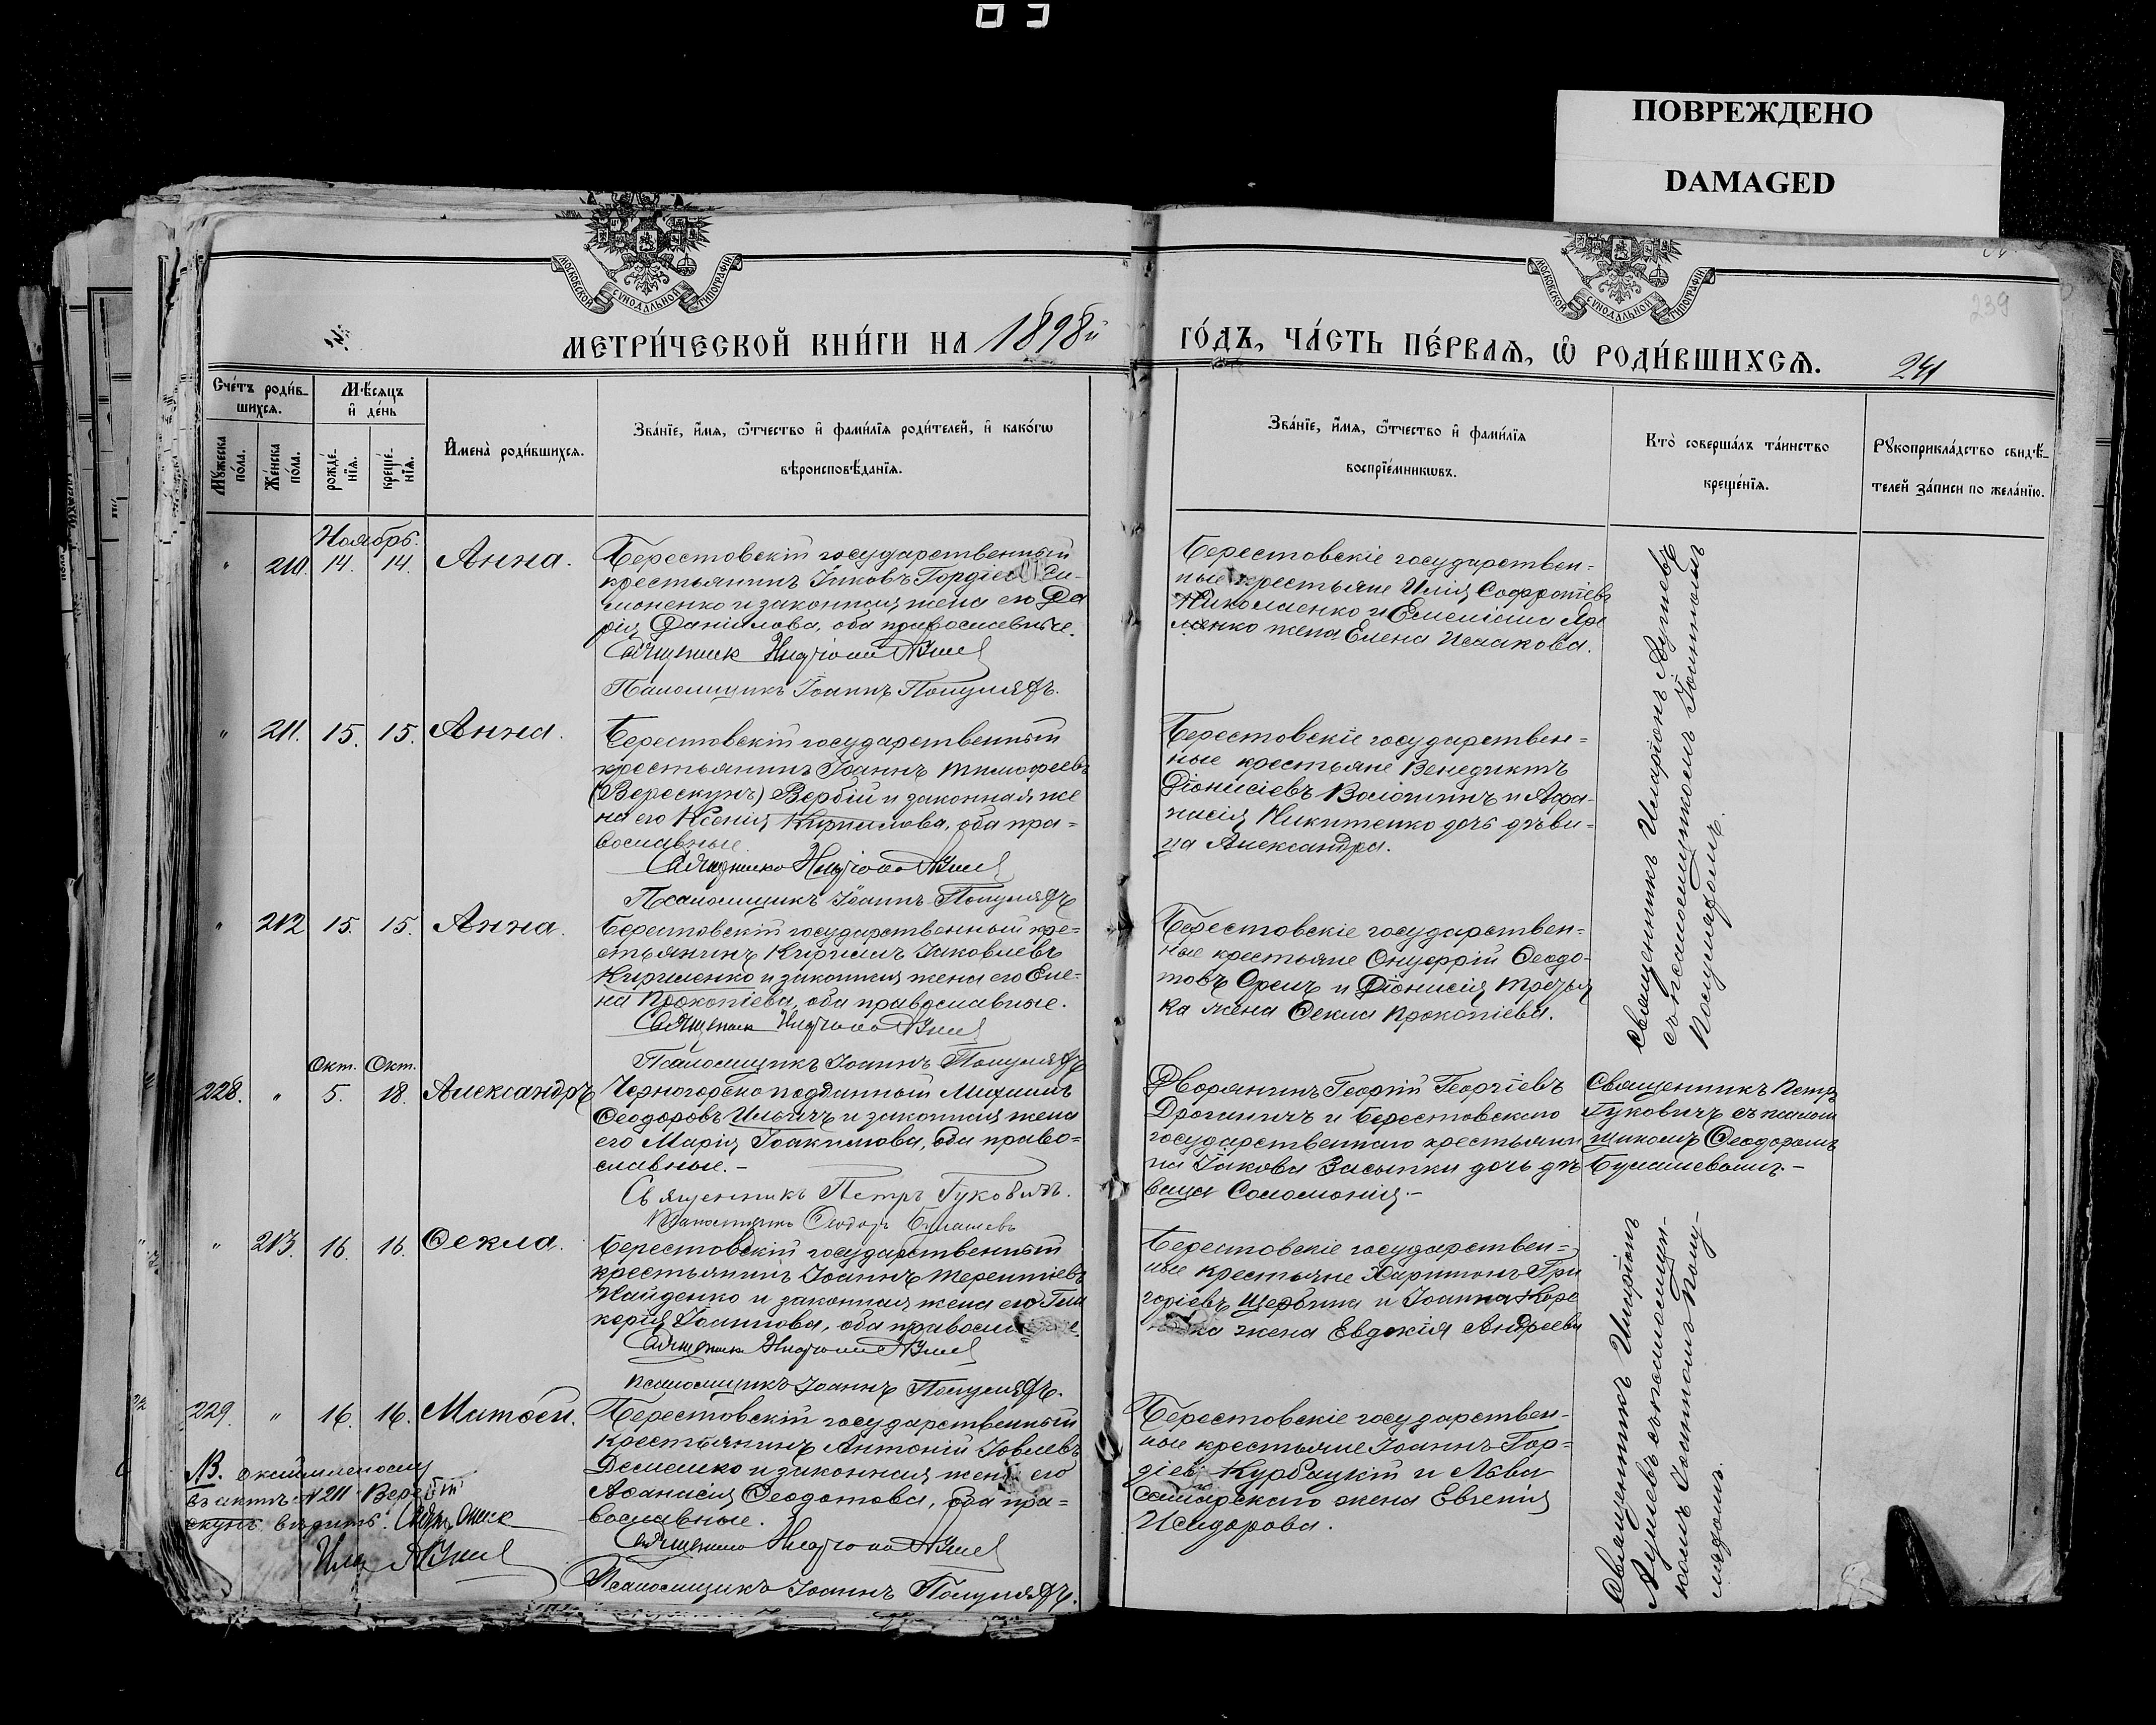 ПОВРЕЖДЕНО
DAMAGED
МОСКОВСКОЙ СѴНОДАЛЬНОЙ ТИПОГРАФІИ
МОСКОВСКОЙ СѴНОДАЛЬНОЙ ТИПОГРАФІИ
239
МЕТРИ́ЧЕСКОЙ КНИ́ГИ НА 1898й
ГО́ДЪ, ЧА́СТЬ ПЕ́РВАѦ, Ѡ҆ РОДИ́ВШИХСѦ.
241
Сче́тъ роди́в-
шихсѧ.
Мѣ́сѧцъ
и҆ де́нь
Мꙋ́жеска
по́ла.
Же́нска
по́ла.
рожде́-
нїѧ.
креще́-
нїѧ.
И҆мена̀ роди́вшихсѧ.
Зва́нїе, и҆́мѧ, ѻ҆́тчество и҆ фами́лїѧ роди́телей, и҆ како́гѡ
вѣроисповѣ́данїѧ.
Зва́нїе, и҆́мѧ, ѻ҆́тчество и҆ фами́лїѧ
воспрїе́мникѡвъ.
Кто̀ соверша́лъ та́инство
креще́нїѧ.
Рꙋкоприкла́дство свидѣ́-
телей за́писи по жела́нїю.
Ноябрь.
" 210. 14. 14. Анна.
Берестовскій государственный
крестьянинъ Іаковъ Гордіевъ Си-
моненко и законная жена его Да
рія Даніилова, оба православные.
Священник Иларіон
Псаломщикъ Іоаннъ
Берестовскіе государствен-
ные крестьяне Илія Софроніевъ
Николаенко и
жена Елена Исаакова.
Священникъ Иларіонъ
съ псаломщикомъ Іоанномъ
" 211. 15. 15. Анна.
Берестовскій государственный
крестьянинъ Іоаннъ Тимофеевъ
(Верескунъ) Вербій и законная же
на его Ксенія Кириллова, оба пра-
вославные.
Священникъ Иларіон
Псаломщикъ Іоаннъ
Берестовскіе государствен-
ные крестьяне Венедиктъ
Діонисіевъ Волошинъ и Афа-
насія Никитенко дочь дѣви-
ца Александра.
" 212 15. 15. Анна.
Берестовскій государственный кре-
стьянинъ Кириллъ Іаковлевъ
Кириленко и законная жена его Еле-
на Прокопіева, оба православные.
Священник Иларіон
Псаломщикъ Іоаннъ
Берестовскіе государствен-
ные крестьяне Онуфрій Ѳеодо-
товъ Орелъ и Діонисія Третья
ка жена Ѳекла Прокопіева.
Окт. Окт.
228. " 5. 18. Александръ
Черногорско подданный Михаилъ
Ѳеодоровъ Ильичъ и законная жена
его Марія Іоакимова, оба право-
славные.-
Священникъ Петръ Гуковичъ.
Псаломщикъ Ѳеодоръ Булашевъ
Дворянинъ Георгій Георгіевъ
и Берестовскаго
государственнаго крестьяни
на Іакова Засыпки дочь дѣ
вица Соломонія.-
Священникъ Петръ
Гуковичъ съ псалом
щикомъ Ѳеодоромъ
Булашевымъ.-
" 213. 16. 16. Ѳекла.
Берестовскій государственный
крестьянинъ Іоаннъ Терентіевъ
Найденко и законная жена его Гли
керія Іоаннова, оба
Священник Иларіон
Псаломщикъ Іоаннъ
Берестовскіе государствен-
ные крестьяне Харитонъ Гри
горіевъ Щербина и Іоанна
жена Евдокія Андреева
Священникъ Иларіонъ
съ псаломщи-
комъ Іоанномъ
229. " 16. 16. Матѳей.
Берестовскій государственный
крестьянинъ Антоній Іовлевъ
и законная жена его
Аѳанасія Ѳеодотова, оба пра-
вославные.
Священникъ Иларіон
Псаломщикъ Іоаннъ
Берестовскіе государствен-
ные крестьяне Іоаннъ Гор-
діевъ Курбацкій и Льва
Самарскаго жена Евгенія
Исидорова.
NB.
въ актѣ № 211